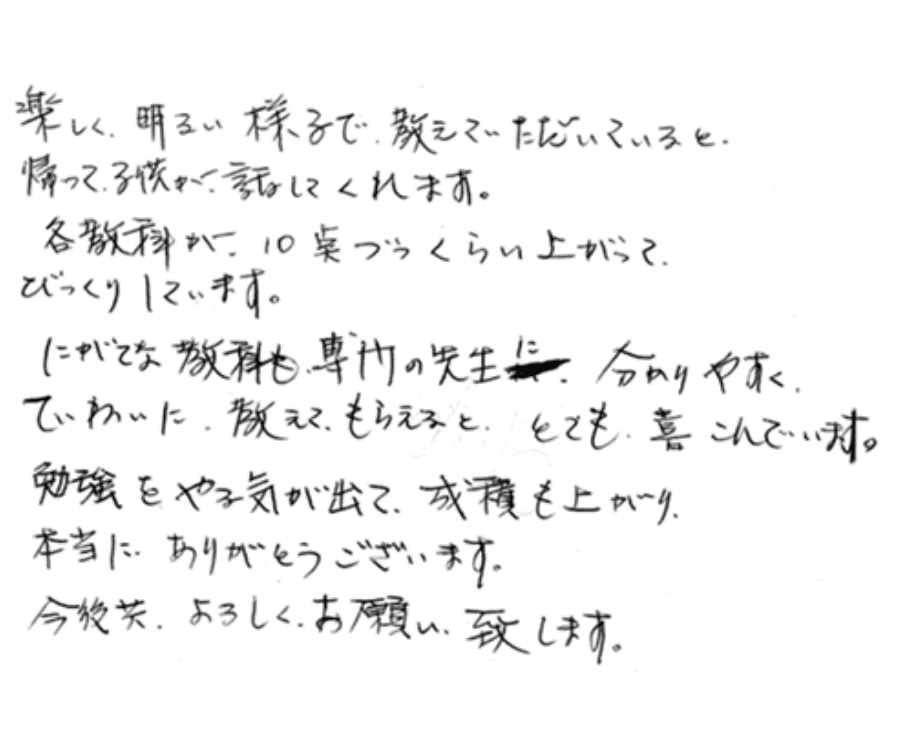 楽しく、明るい様子で、教えていただいていると、
帰って、子供が、話してくれます。
各教科が、10点づつくらい上がって、
びっくりしています。
にがてな教科も、専門の先生に、分かりやすく、
ていねいに、教えて、もらえると、とても、喜こんでいます。
勉強をやる気が出て、成積も上がり、
本当に、ありがとうございます。
今後共、よろしく、お願い、致します。